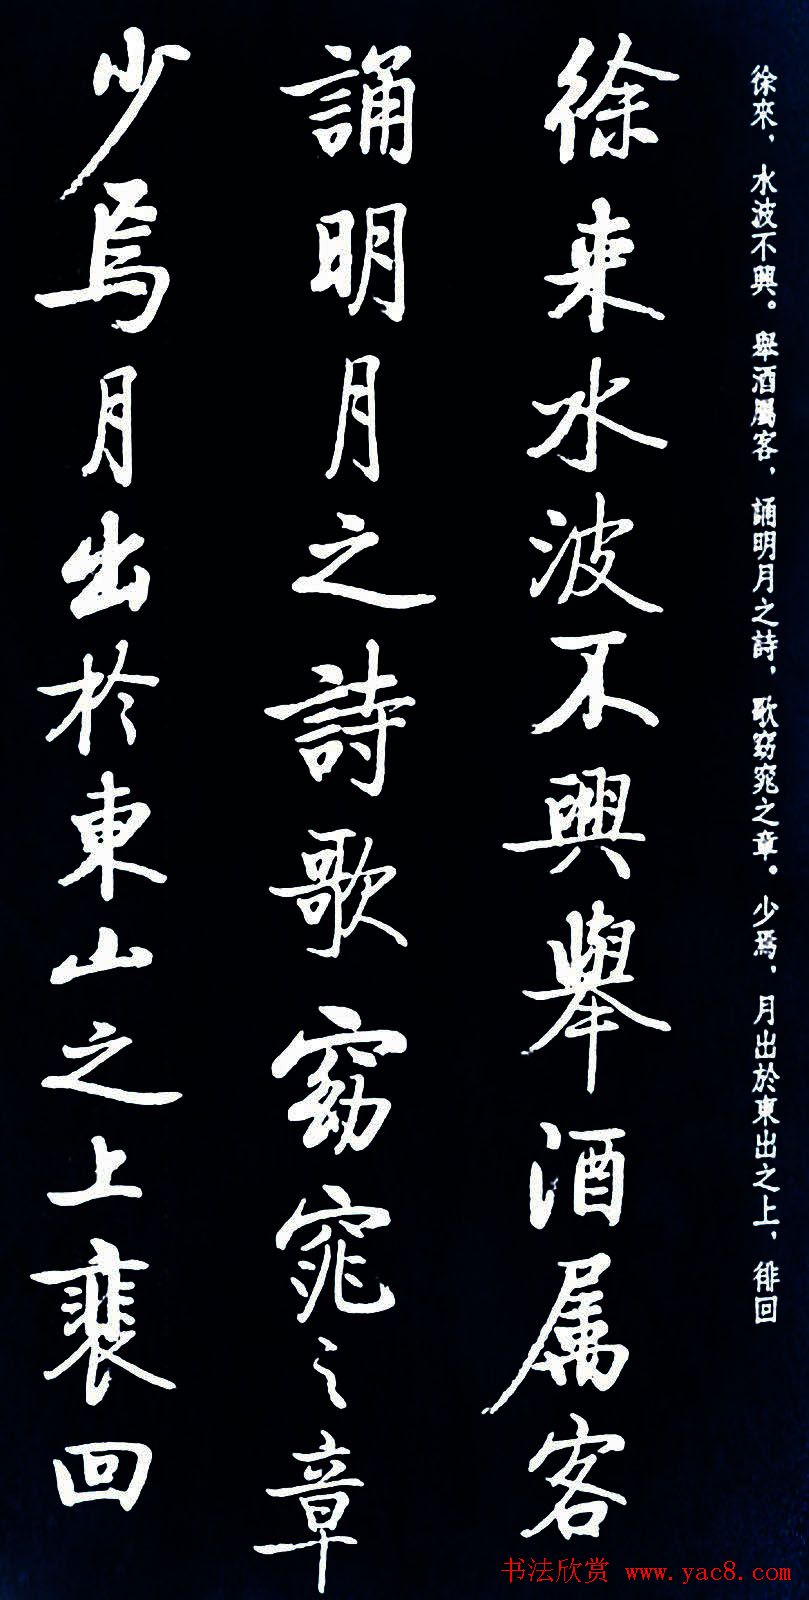 徐來，水波不興。舉酒屬客，誦明月之詩，歌窈窕之章。少焉，月出於東出之上，徘回
徐來水波不興舉酒属客
誦明月之詩歌窈窕之章
少焉月出於東山之上裴回
书法欣赏 www.yac8.com